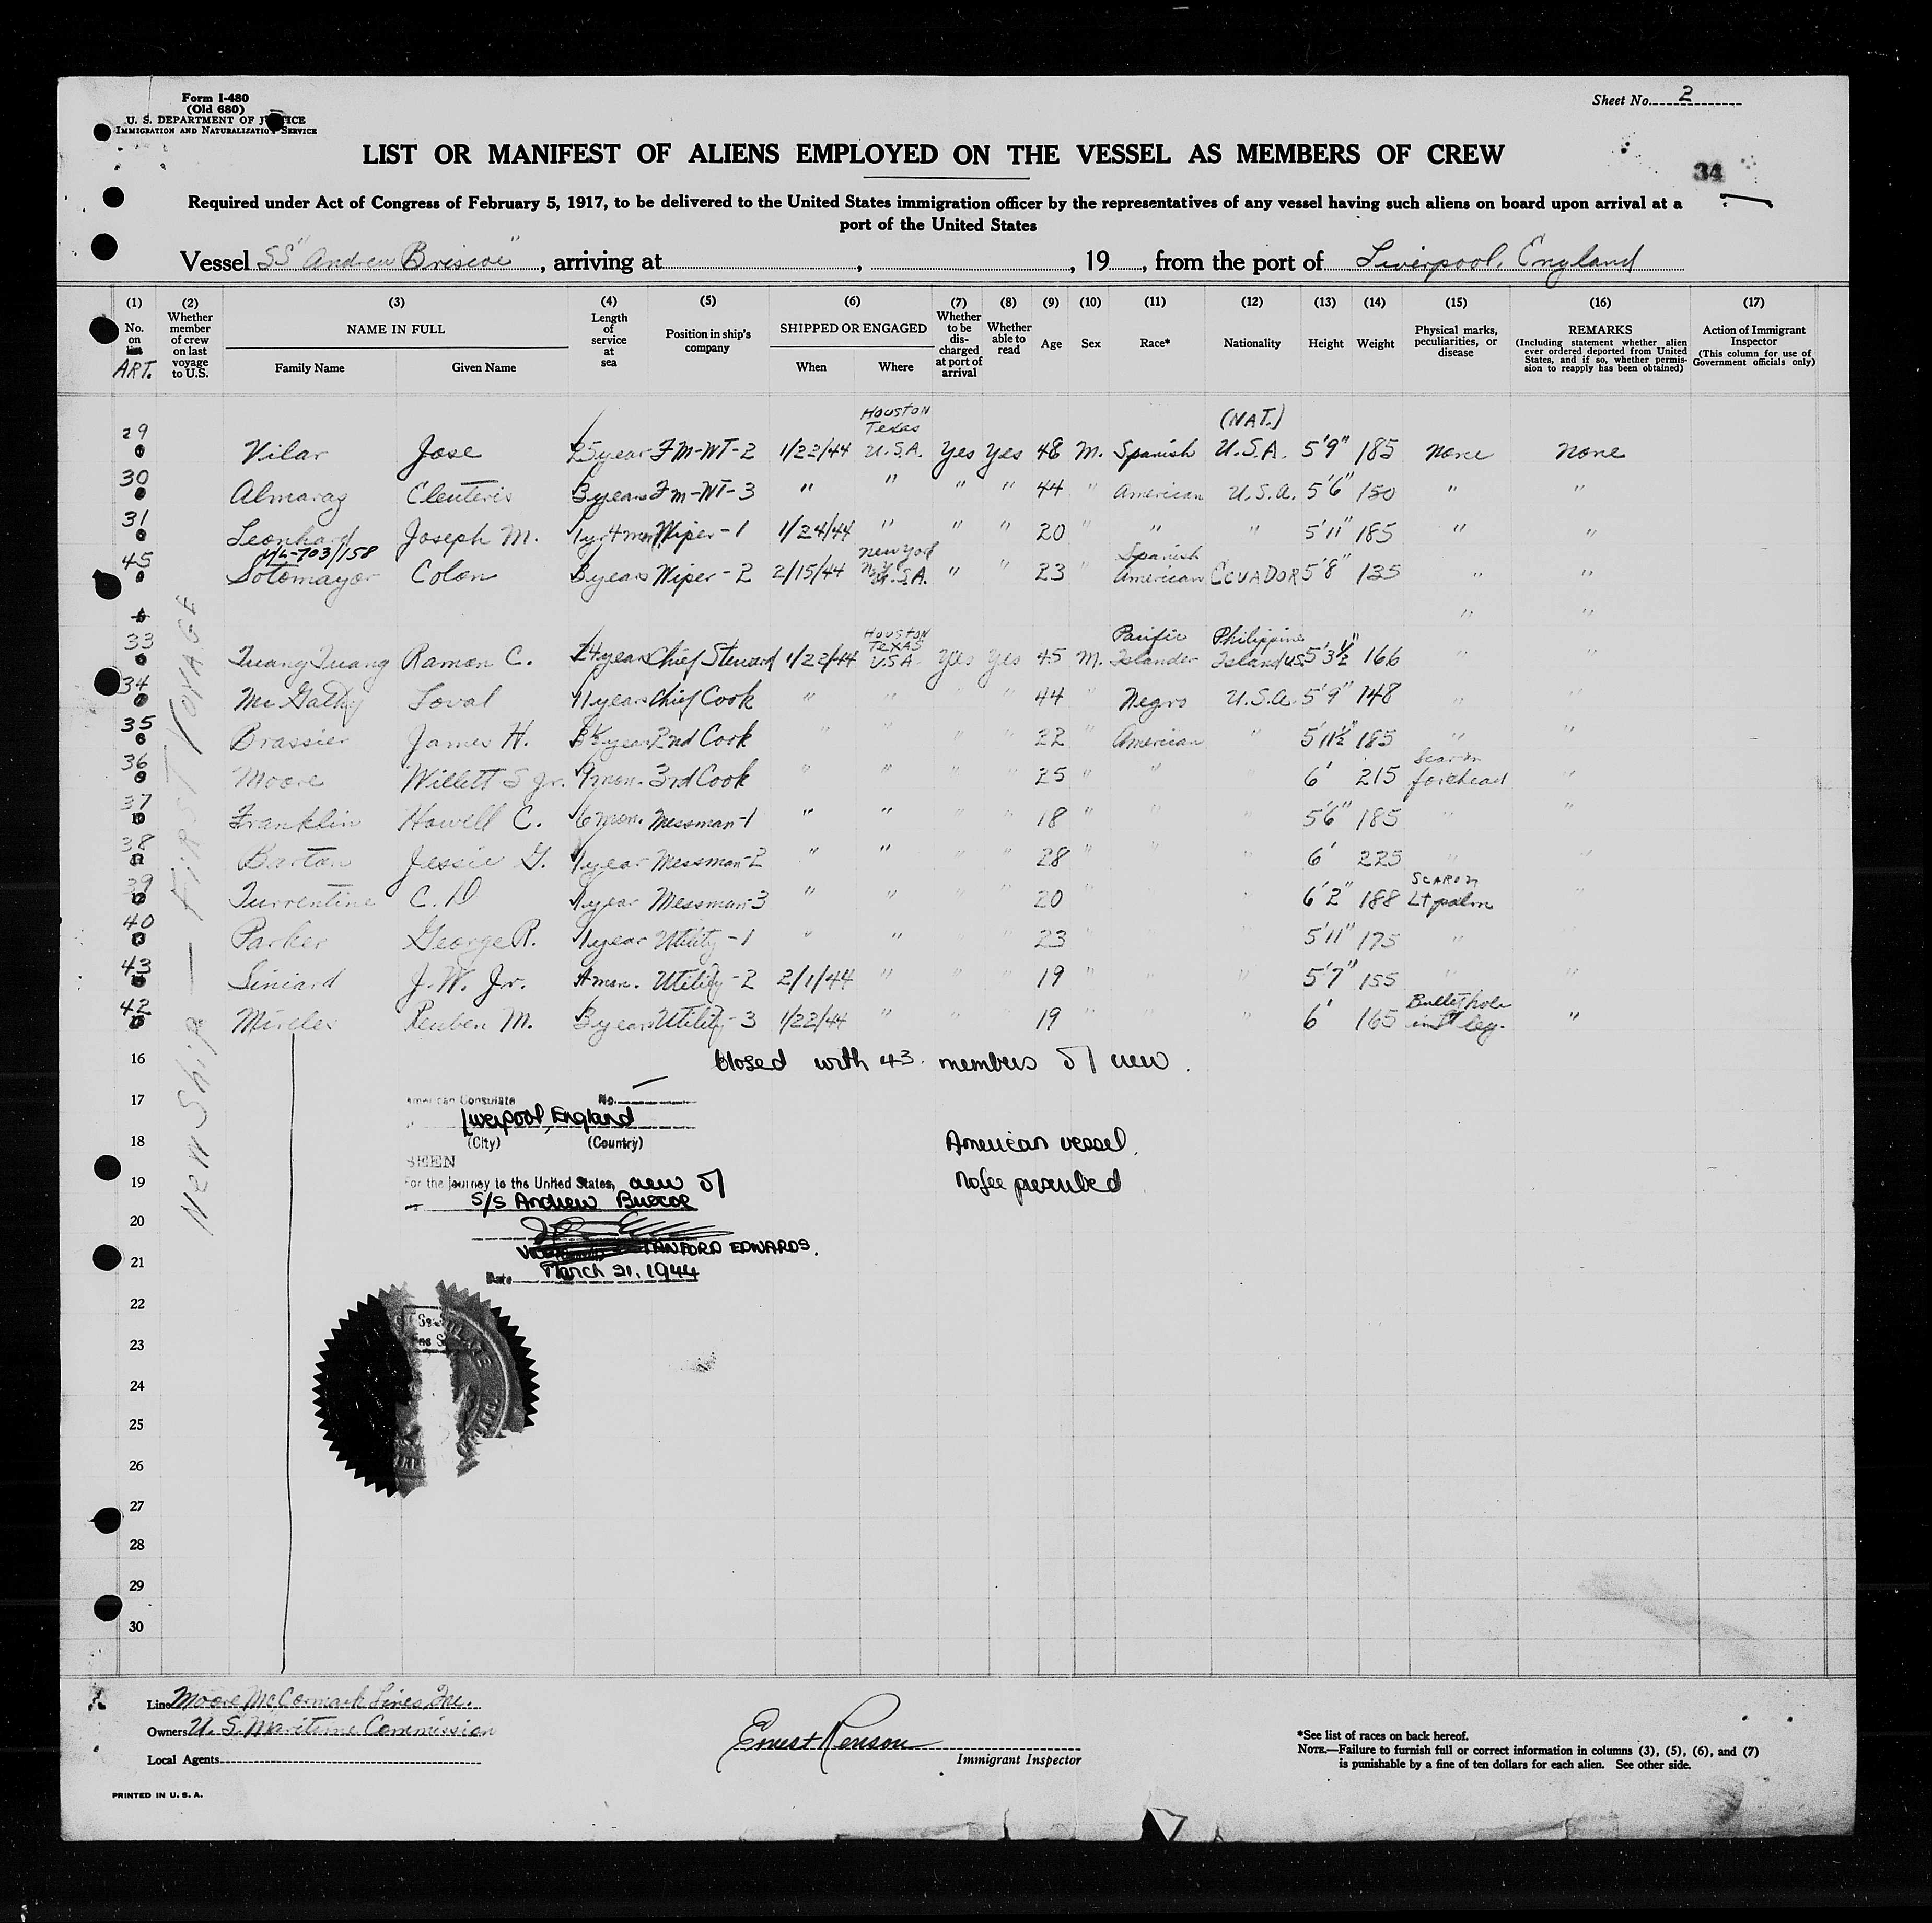 Form I-480
(Old 680)
U. S. DEPARTMENT OF JUSTICE
IMMIGRATION AND NATURALIZATION SERVICE
Sheet No. 2
LIST OR MANIFEST OF ALIENS EMPLOYED ON THE VESSEL AS MEMBERS OF CREW
34
Required under Act of Congress of February 5, 1917, to be delivered to the United States immigration officer by the representatives of any vessel having such aliens on board upon arrival at a
port of the United States
Vessel SS "Andrew Briscoe", arriving at , , 19 , from the port of Liverpool, England
(1) (2) (3) (4) (5) (6) (7) (8) (9) (10) (11) (12) (13) (14) (15) (16) (17)
No. on list ART.
Whether member of crew on last voyage to U.S.
NAME IN FULL
Family Name Given Name
Length of service at sea
Position in ship's company
SHIPPED OR ENGAGED
When Where
Whether to be discharged at port of arrival
Whether able to read
Age Sex Race* Nationality Height Weight
Physical marks, peculiarities, or disease
REMARKS
(Including statement whether alien ever ordered deported from United States, and if so, whether permission to reapply has been obtained)
Action of Immigrant Inspector
(This column for use of Government officials only)
New Ship — FIRST VOYAGE
29 Vilar Jose 25 year FM-WT-2 1/22/44 Houston Texas U.S.A. Yes Yes 48 M. Spanish (NAT.) U.S.A. 5'9" 185 none none
30 Almarag Cleuteris 3 years FM-WT-3 " " " " 44 " American U.S.A. 5'6" 150 " "
31 Leonhard Joseph M. 1yr 4mon Wiper-1 1/24/44 " " " 20 " " " 5'11" 185 " "
V/L-703/158
45 Sotomayor Colon 3 years Wiper-2 2/15/44 New York N.Y. U.S.A. " " 23 " Spanish American ECUADOR 5'8" 135 " "
" "
33 TuangTuang Ramon C. 24 years Chief Steward 1/22/44 Houston TEXAS U.S.A. Yes Yes 45 M. Pacific Islander Philippine Island U.S. 5'3½" 166 " "
34 McGathy Loval 11 years Chief Cook " " " " 44 " Negro U.S.A. 5'9" 148 " "
35 Brassier James H. 3½ year 2nd Cook " " " " 22 " American " 5'11½" 185 " "
36 Moore Willett S Jr. 9 mon. 3rd Cook " " " " 25 " " " 6' 215 Scar on forehead "
37 Franklin Howell C. 6 mon. Messman-1 " " " " 18 " " " 5'6" 185 " "
38 Barton Jessie G. 1 year Messman-2 " " " " 28 " " " 6' 225 " "
39 Turrentine C. D 1 year Messman-3 " " " " 20 " " " 6'2" 188 SCAR ON Lt palm "
40 Parker George R. 1 year Utility-1 " " " " 23 " " " 5'11" 175 " "
43 Siniard J. W. Jr. 4 mon. Utility-2 2/1/44 " " " 19 " " " 5'7" 155 " "
42 Mireles Reuben M. 3 years Utility-3 1/22/44 " " " 19 " " " 6' 165 Bullet hole in leg. "
16 Closed with 43 members of crew.
17 American Consulate No.
Liverpool, England
18 (City) (Country) American vessel.
SEEN
19 For the journey to the United States, crew of No fee prescribed
S/S Andrew Briscoe
20
VICE STANFORD EDWARDS.
21 Date March 21, 1944
22
23
24
25
26
27
28
29
30
Line Moore McCormack Lines, Inc.
Owners U. S. Maritime Commission
Local Agents
Ernest Renson
Immigrant Inspector
*See list of races on back hereof.
NOTE.—Failure to furnish full or correct information in columns (3), (5), (6), and (7)
is punishable by a fine of ten dollars for each alien. See other side.
PRINTED IN U. S. A.